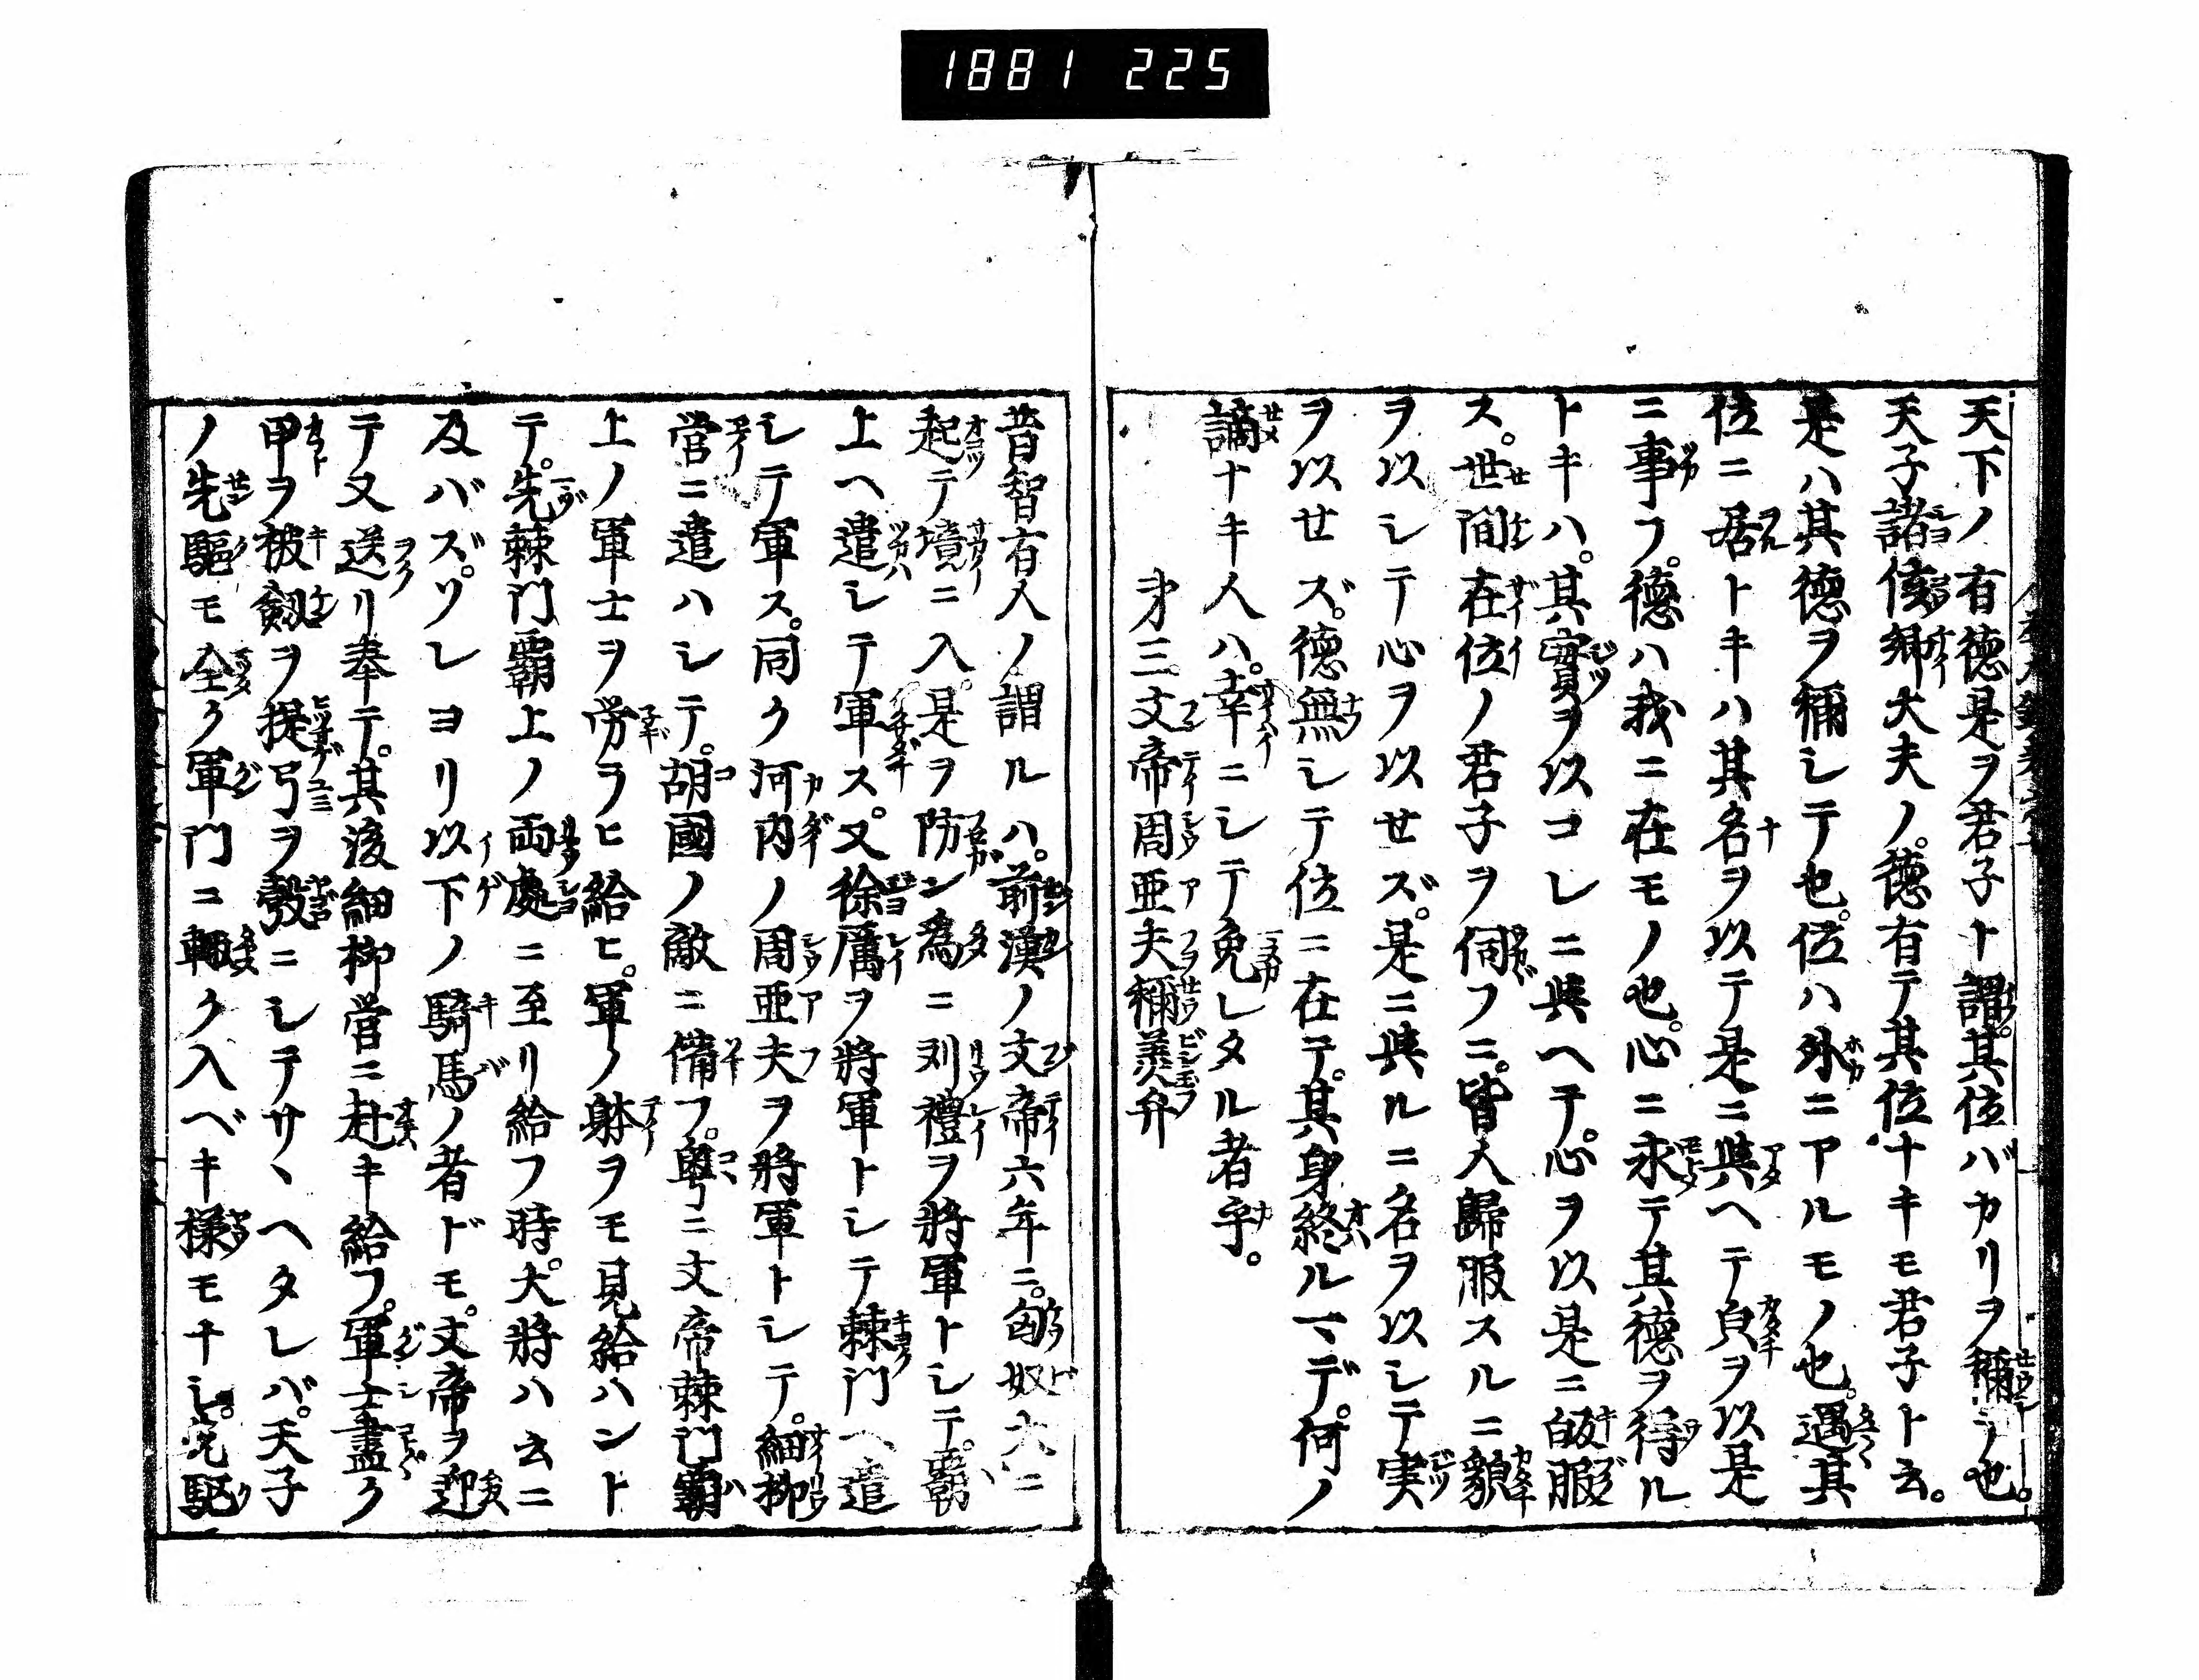 1881 225
天下ノ有德是ヲ君子ト謂。其位バカリヲ稱テ也。
天子諸侯卿大夫ノ。德有テ其位ナキモ君子ト云。
是ハ其德ヲ稱シテ也。位ハ外ニアルモノ也。遇其
位ニ居トキハ其名ヲ以テ是ニ與ヘテ皃ヲ以是
ニ事フ。德ハ我ニ在モノ也。心ニ求テ其德ヲ得ル
トキハ。其實ヲ以コレニ與ヘテ。心ヲ以是ニ服
ス。世間在位ノ君子ヲ伺フニ。皆人歸服スルニ貌
ヲ以シテ心ヲ以セズ。是ニ與ルニ名ヲ以シテ実
ヲ以セズ。德無シテ位ニ在テ。其身終ルマデ。何ノ
謫ナキ人ハ。幸ニシテ免レタル者乎。
第三文帝周亜夫稱美弁
昔智有人ノ謂ルハ。前漢ノ文帝六年ニ。匈奴大ニ
起テ境ニ入。是ヲ防ン為ニ刘禮ヲ將軍トシテ。覇
上ヘ遣シテ軍ス。又徐厲ヲ將軍トシテ棘門ヘ遣
シテ軍ス。同ク河内ノ周亜夫ヲ將軍トシテ。細柳
營ニ遣ハシテ。胡國ノ敵ニ備フ。粤ニ文帝棘門覇
上ノ軍士ヲ労ラヒ給ヒ。軍ノ躰ヲモ見給ハント
テ。先棘門覇上ノ両處ニ至リ給フ時。大將ハ云ニ
及バズ。ソレヨリ以下ノ騎馬ノ者ドモ。文帝ヲ迎
テ又送リ奉テ。其後細柳営ニ赴キ給フ。軍士盡ク
甲ヲ被劔ヲ提弓ヲ彀ニシテサヽヘタレバ。天子
ノ先驅モ全ク軍門ニ輙ク入ベキ様モナシ。先駈